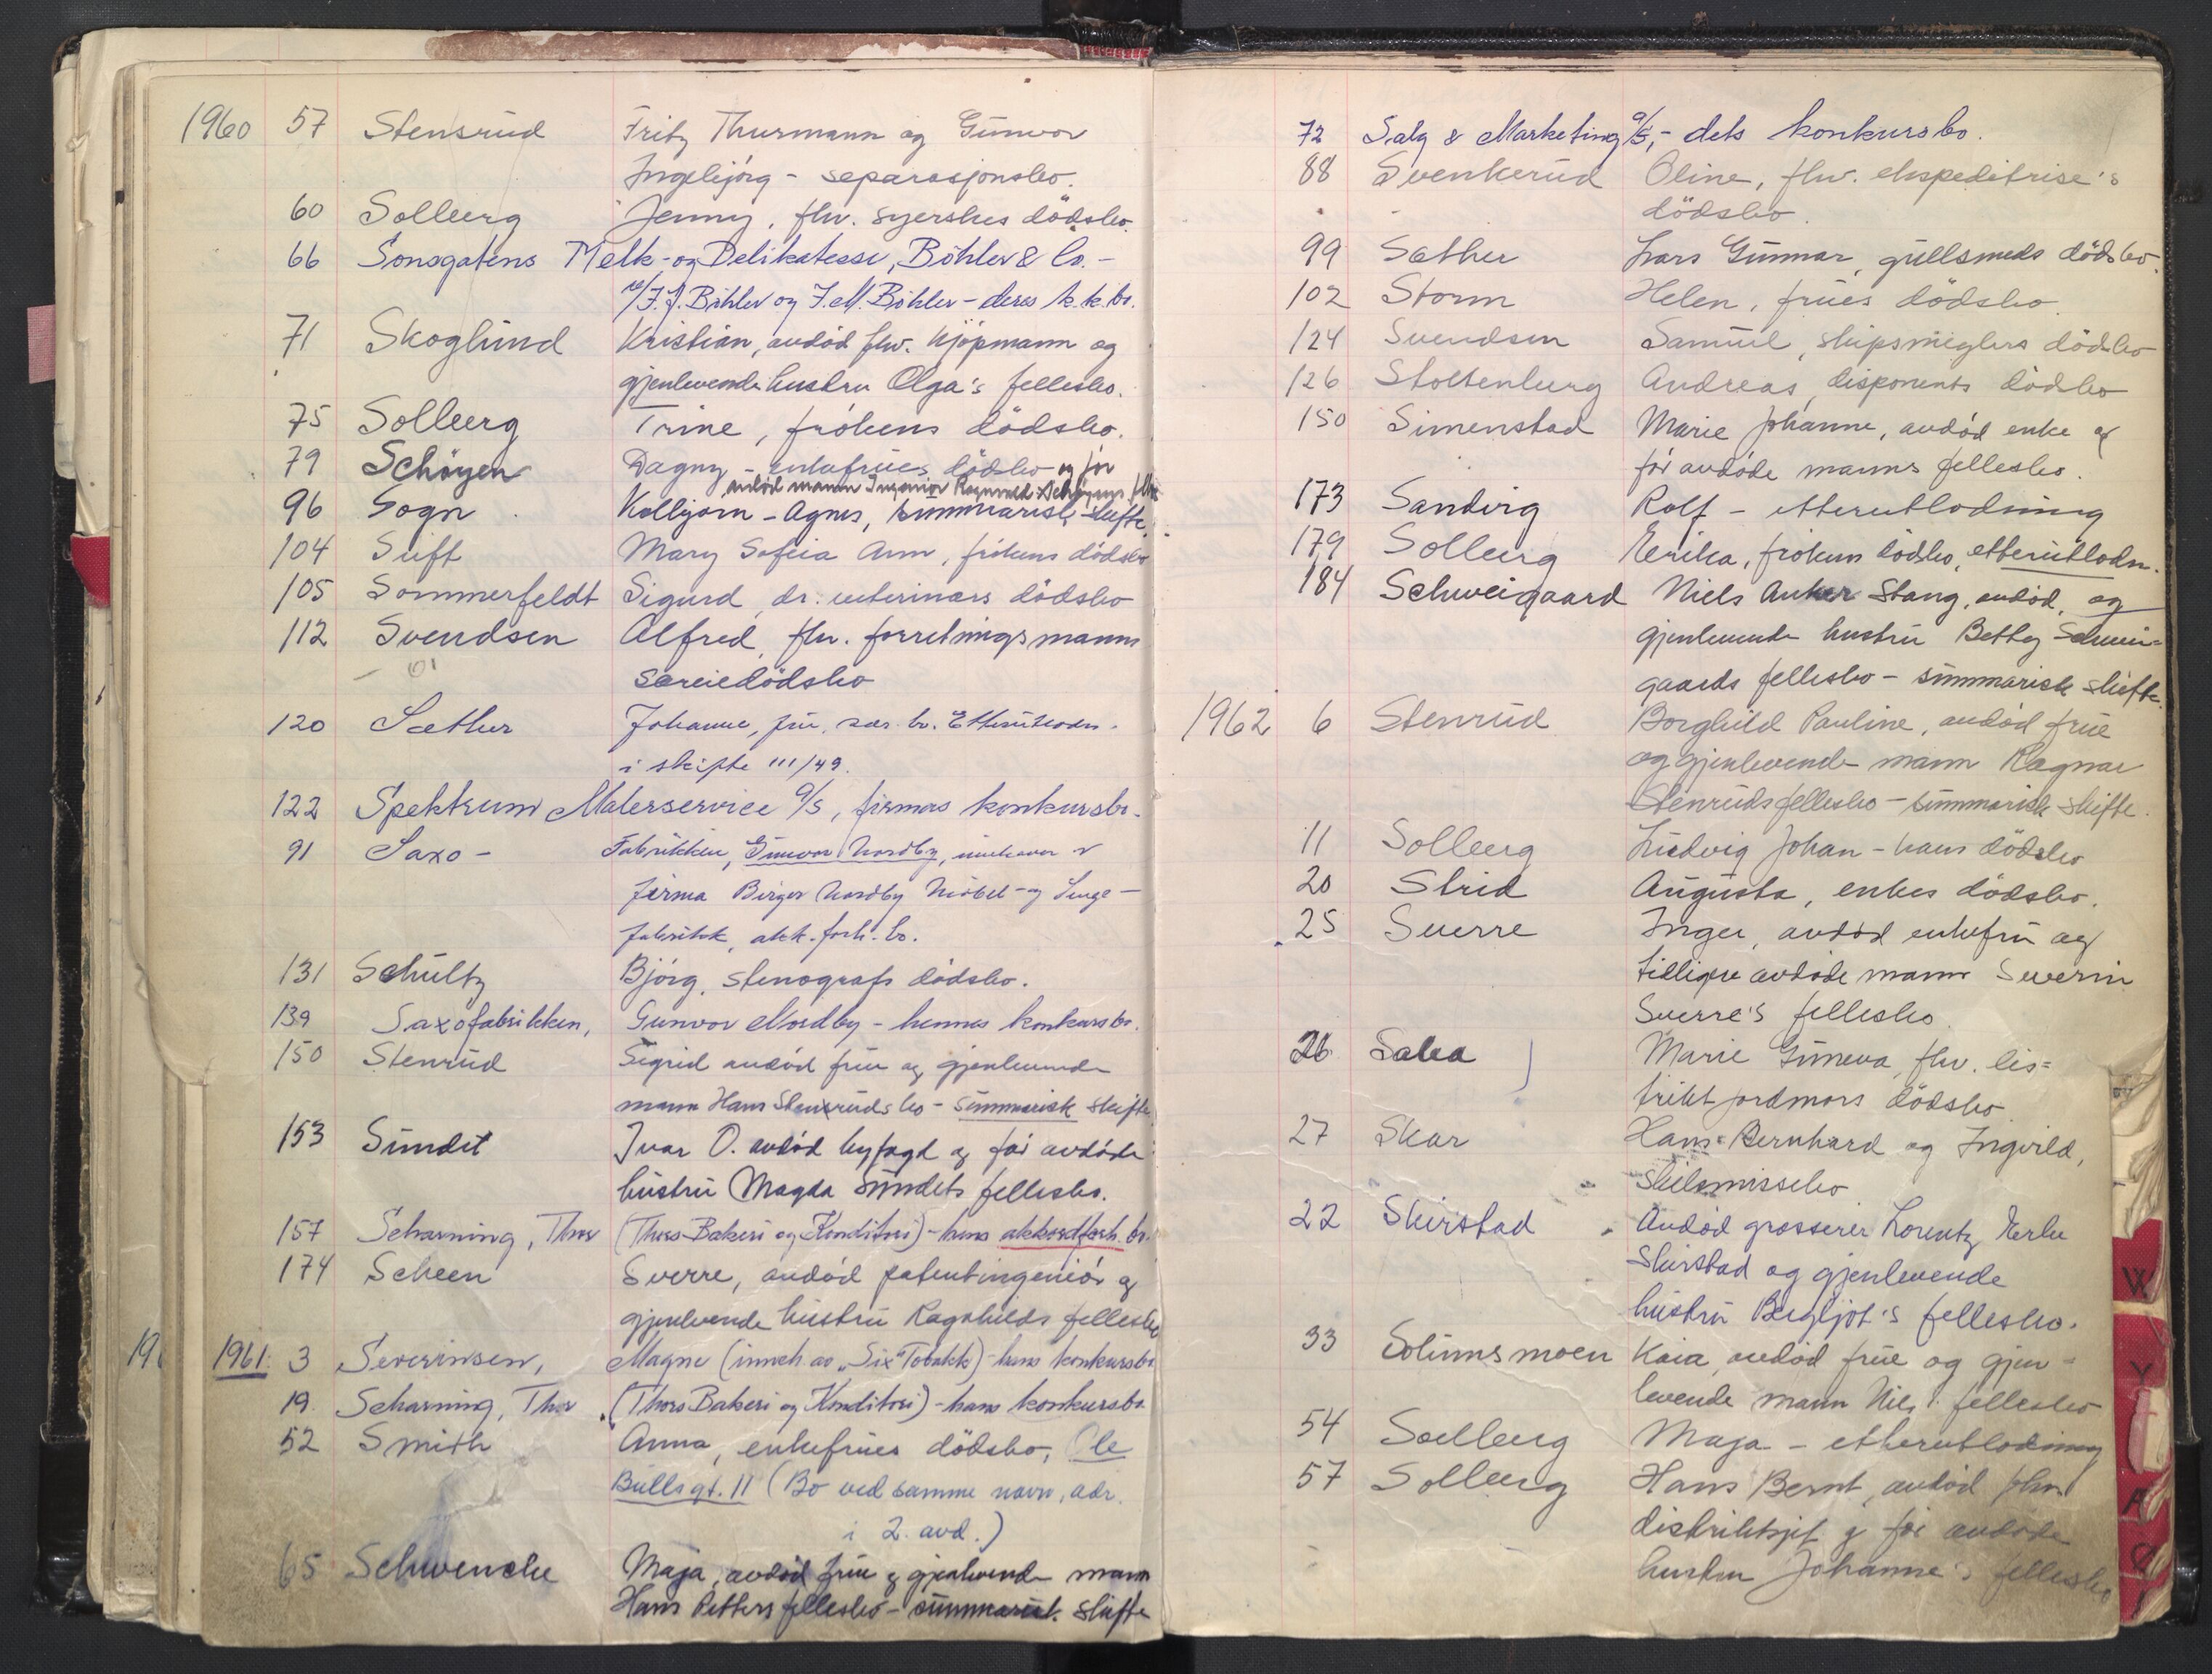 1960 57 Stensrud Fritz Thurmann og Gunvor
Ingebjörg - separasjonsbo.
60 Solberg Jenny, fhv. syerskes dödsbo.
66 Sonsgatens Melk- og Delikatesse, Böhler & Co. -
v/J. J. Böhler og J. M. Böhler - deres k.k.bo.
71 Skoglund Kristian, avdöd fhv. kjöpmann og
gjenlevende hustru Olga's fellesbo.
75 Solberg Trine, frökens dödsbo.
79 Schöyen Dagny - enkefrues dödsbo og för
avdöd mann Ingeniör Ragnvald Schöyens
96 Sogn Kolbjörn - Agnes, summarisk skifte
104 Suft Mary Sofia Ann, frökens dödsbo
105 Sommerfeldt Sigurd, dr. veterinærs dödsbo
112 Svendsen Alfred, fhv. forretningsmanns
særeiedödsbo
120 Sæther Johanne, frue, sær. bo. Etterutlodn.
i skifte 111/49.
122 Spektrum Malerservice A/S, firmas konkursbo.
91 Saxo - Fabrikken, Gunvor Nordby, innehaver
firma Birger Nordby Möbel- og Senge-
fabrikk, akk. forh. bo.
131 Schultz Björg, stenografs dödsbo.
139 Saxofabrikken, Gunvor Nordby - hennes konkursbo.
150 Stenrud Sigrid avdöd frue og gjenlevende
mann Hans Stenruds bo - summarisk skifte
153 Sundet Ivar O. avdöd byfogd og för avdöde
hustru Magda Sundets fellesbo.
157 Scharning, Thor (Thors Bakeri og Konditori) - hans akkordforh. bo.
174 Scheen Sverre, avdöd patentingeniör og
gjenlevende hustru Ragnhilds fellesbo
1961 3 Severinsen, Magne (inneh av "Six" Tobakk) - hans konkursbo
19 Scharning, Thor (Thors Bakeri og Konditori) - hans konkursbo.
52 Smith Anna, enkefrues dödsbo, Ole
Bullsgt. 11 (Bo ved samme navn, adr.
i 2. avd.)
65 Schwencke Maja, avdöd frue og gjenlevende mann
Hans Petters fellesbo - summarisk skifte
72 Salg & Marketing A/S, - dets konkursbo.
88 Svenkerud Oline, fhv. ekspeditrise's
dödsbo.
99 Sæther Lars Gunnar, gullsmeds dödsbo.
102 Storm Helen, frues dödsbo.
124 Svendsen Samuel, skipsmeglers dödsbo
126 Stoltenberg Andreas, disponents dödsbo
150 Simenstad Marie Johanne, avdöd enke og
för avdöde manns fellesbo.
173 Sandvig Rolf - etterutlodning
179 Solberg Erika, frökens dödsbo, etterutlodn.
184 Schweigaard Niels Anker Stang, avdöd, og
gjenlevende hustru Betty Schwei=
gaards fellesbo - summarisk skifte.
1962 6 Stenrud Borghild Pauline, avdöd frue
og gjenlevende mann Ragnar
Stenruds fellesbo - summarisk skifte.
11 Solberg Ludvig Johan - hans dödsbo
20 Strid Augusta, enkes dödsbo.
25 Sverre Inger, avdöd enkefru og
tidligere avdöde mann Severin
Sverre's fellesbo.
26 Saba Marie Guneva, fhv. dis=
trikt jordmors dödsbo
27 Skar Hans Bernhard og Ingvild,
skilsmissebo
22 Skirstad Avdöd grosserer Lorentz Erke
Skirstad og gjenlevende
hustru Bergljot's fellesbo.
33 Solumsmoen Kaia, avdöd frue og gjen-
levende mann Nils' fellesbo
54 Soelberg Maja - etterutlodning
57 Solberg Hans Bernt, avdöd fhv.
distriktsjef og för avdöde
hustru Johanne's fellesbo